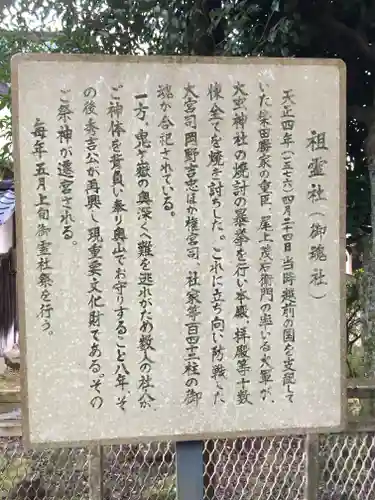 祖霊社（御魂社）
天正四年（一五七六）四月二十四日当時越前の国を支配して
いた柴田勝家の重臣、尾上茂右衛門の率いる大軍が、
大虫神社の焼討の暴挙を行い本殿、拝殿等十数
棟全てを焼き討ちした。これに立ち向い防戦した
大宮司岡野吉忠ほか権宮司、社家等百四十三柱の御
魂が合祀されている。
一方、鬼ヶ嶽の奥深くへ難を逃れるため数人の社人が、
ご神体を背負い奉り奥山でお守りすること八年、そ
の後秀吉公が再興し現重要文化財である。その
ご祭神が遷宮される。
毎年五月上旬御霊社祭を行う。